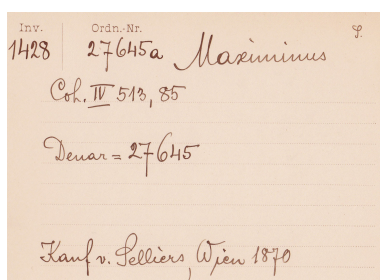 Inv. Ordn.-Nr. S.
1428 27645a Maximinus
Coh. IV 513, 85
Denar = 27645
Kauf v. Selliers, Wien 1870